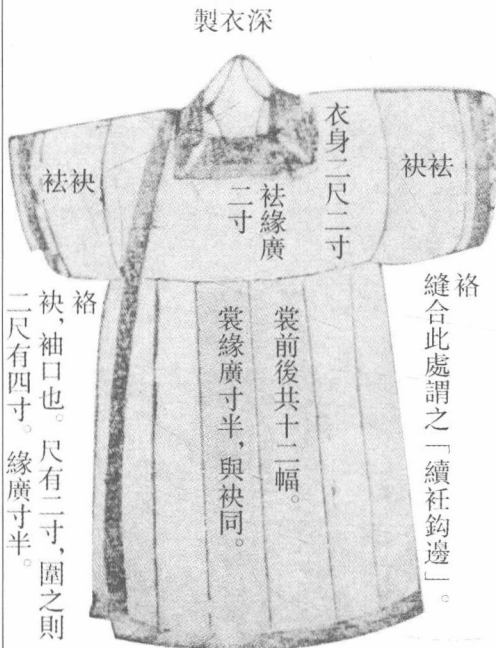 深衣製
袪袂
衣身二尺二寸
袪緣廣
二寸
袂袪
袼
縫合此處謂之「續衽鈎邊」。
裳前後共十二幅。
裳緣廣寸半，與袂同。
袼
袂，袖口也。尺有二寸，圍之則
二尺有四寸。緣廣寸半。